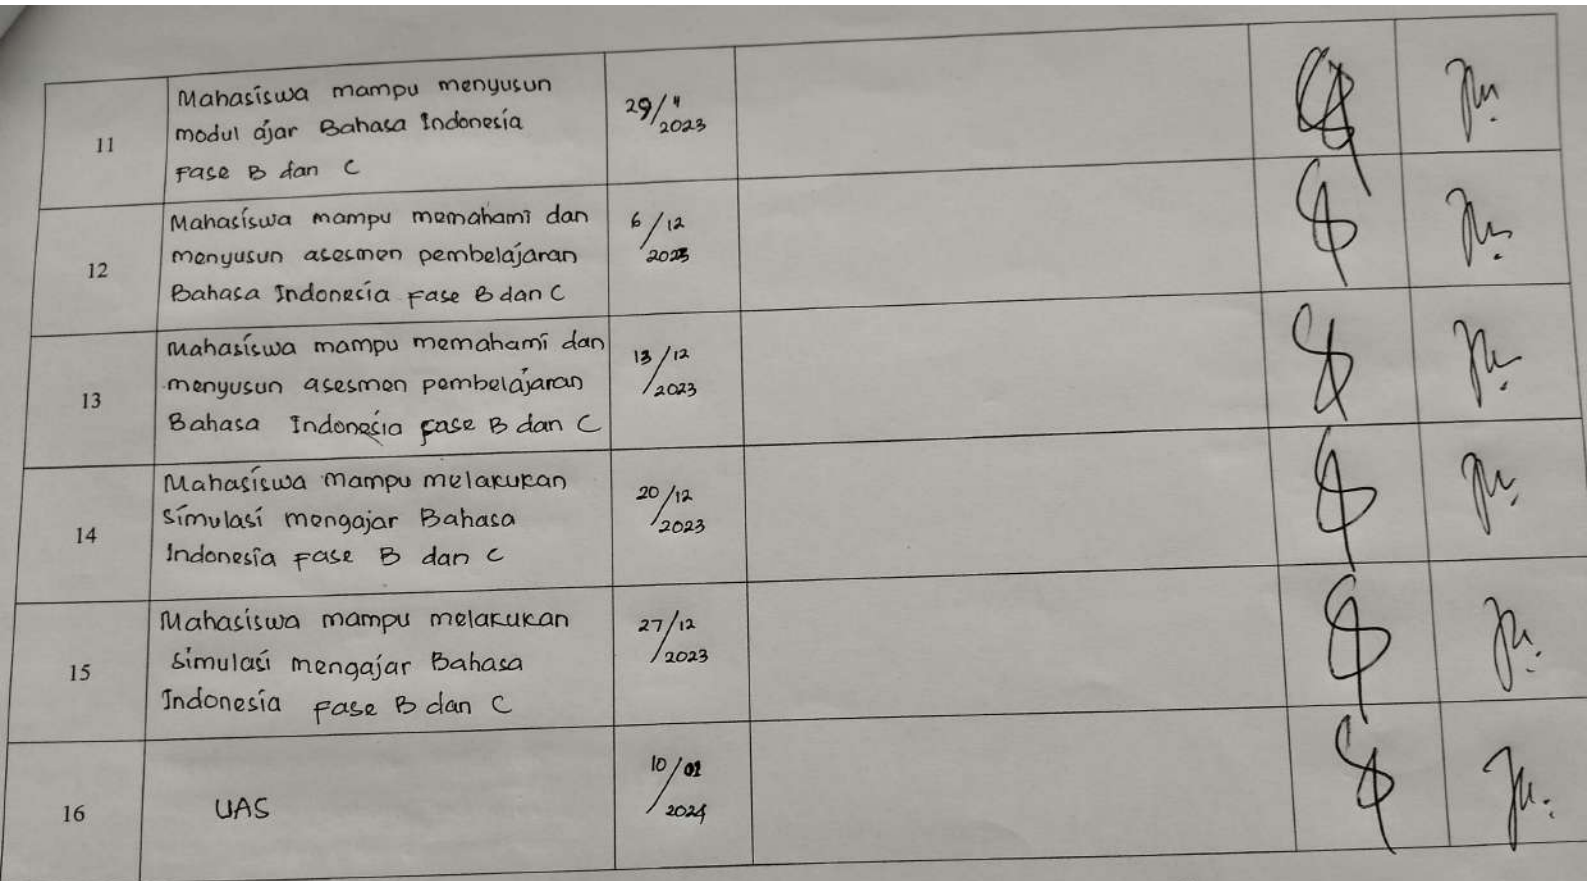 11
Mahasiswa mampu menyusun
modul ajar Bahasa Indonesia
Fase B dan C
29/11
2023
12
Mahasiswa mampu memahami dan
menyusun asesmen pembelajaran
Bahasa Indonesia Fase B dan C
6/12
2023
13
Mahasiswa mampu memahami dan
menyusun asesmen pembelajaran
Bahasa Indonesia Fase B dan C
13/12
2023
14
Mahasiswa mampu melakukan
simulasi mengajar Bahasa
Indonesia Fase B dan C
20/12
2023
15
Mahasiswa mampu melakukan
simulasi mengajar Bahasa
Indonesia Fase B dan C
27/12
2023
16
UAS
10/
2024